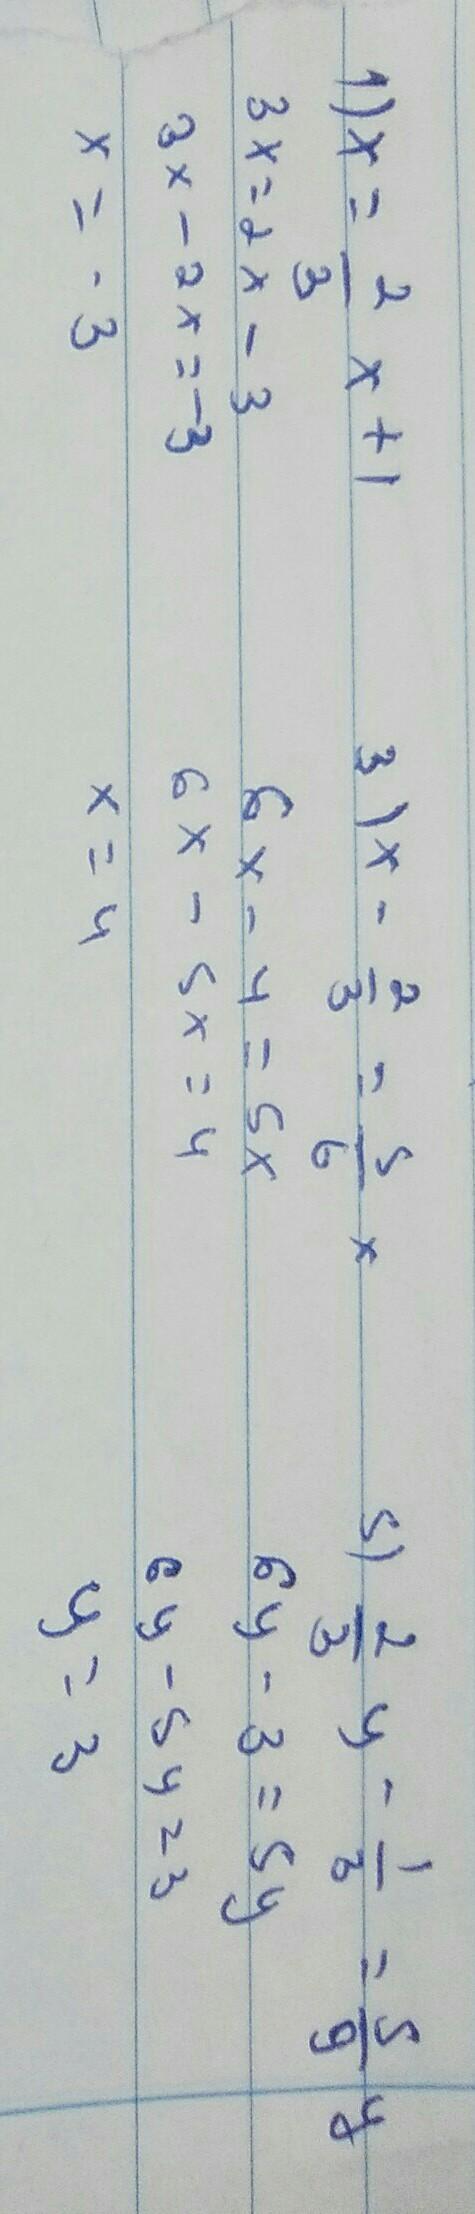 1) x = 2/3 x + 1
3x = 2x - 3
3x - 2x = -3
x = -3
3) x - 2/3 = 5/6 x
6x - 4 = 5x
6x - 5x = 4
x = 4
5) 2/3 y - 1/3 = 5/9 y
6y - 3 = 5y
6y - 5y = 3
y = 3